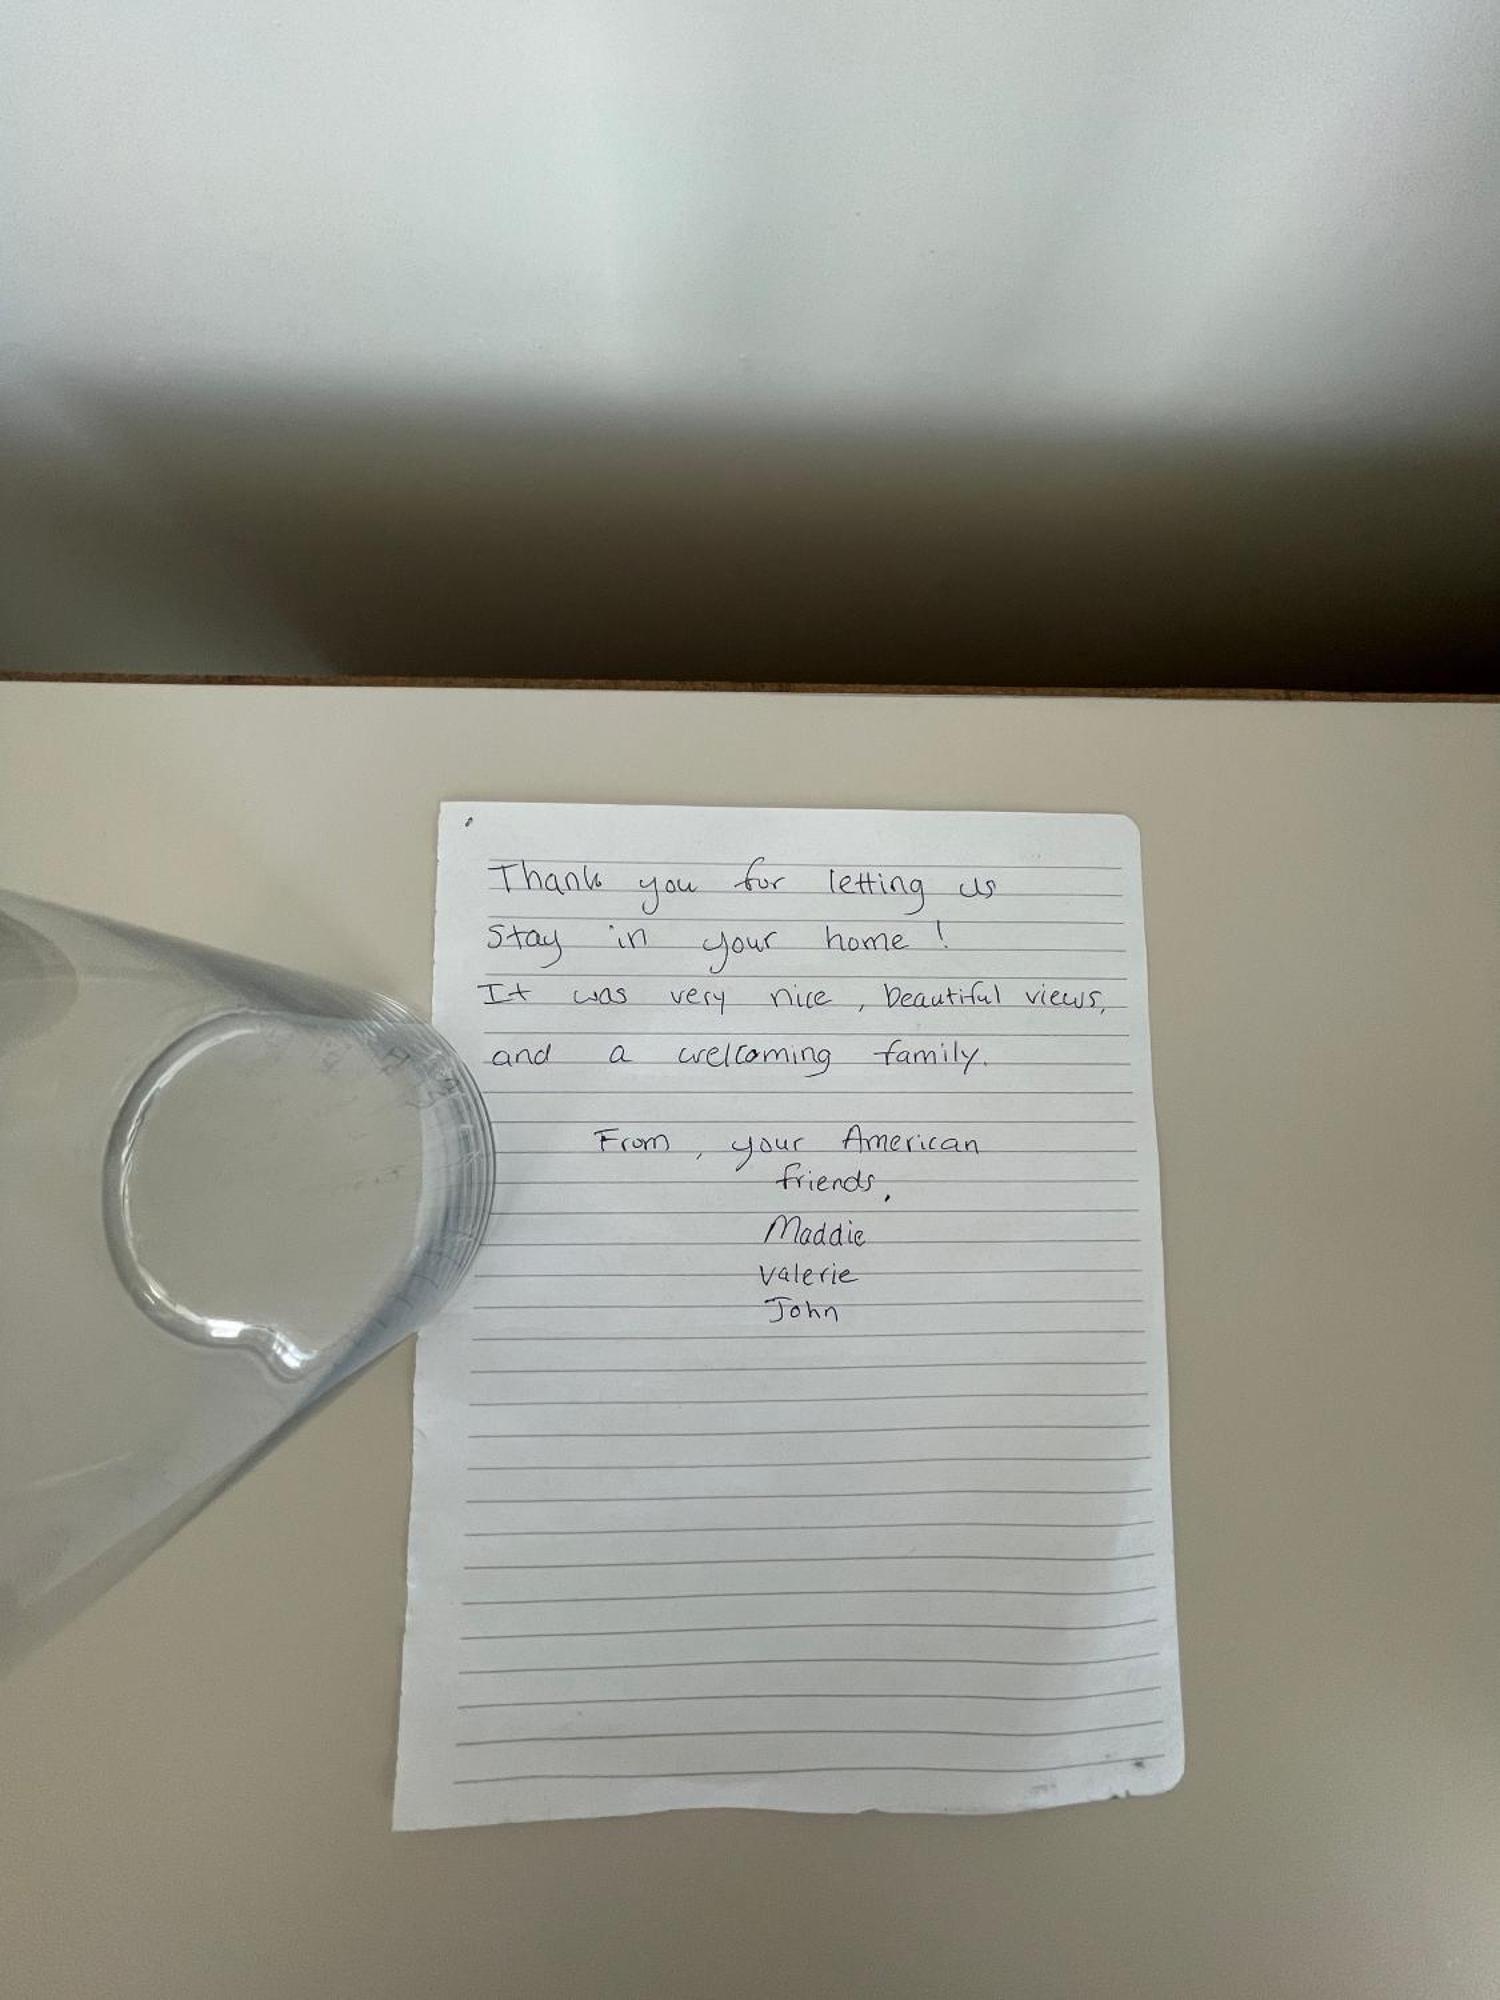 Thank you for letting us
Stay in your home!
It was very nice, beautiful views,
and a welcoming family.
From, your American
friends,
Maddie
Valerie
John